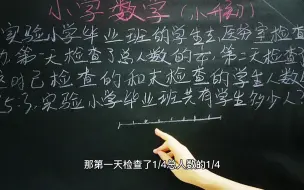 小学数学(小升初)
实验小学毕业班的学生去医务室检查
第一天检查了总人数的 第二天检查了
时已检查的和未检查的学生人数
5:3.实验小学毕业班共有学生多少人?
那第一天检查了1/4总人数的1/4